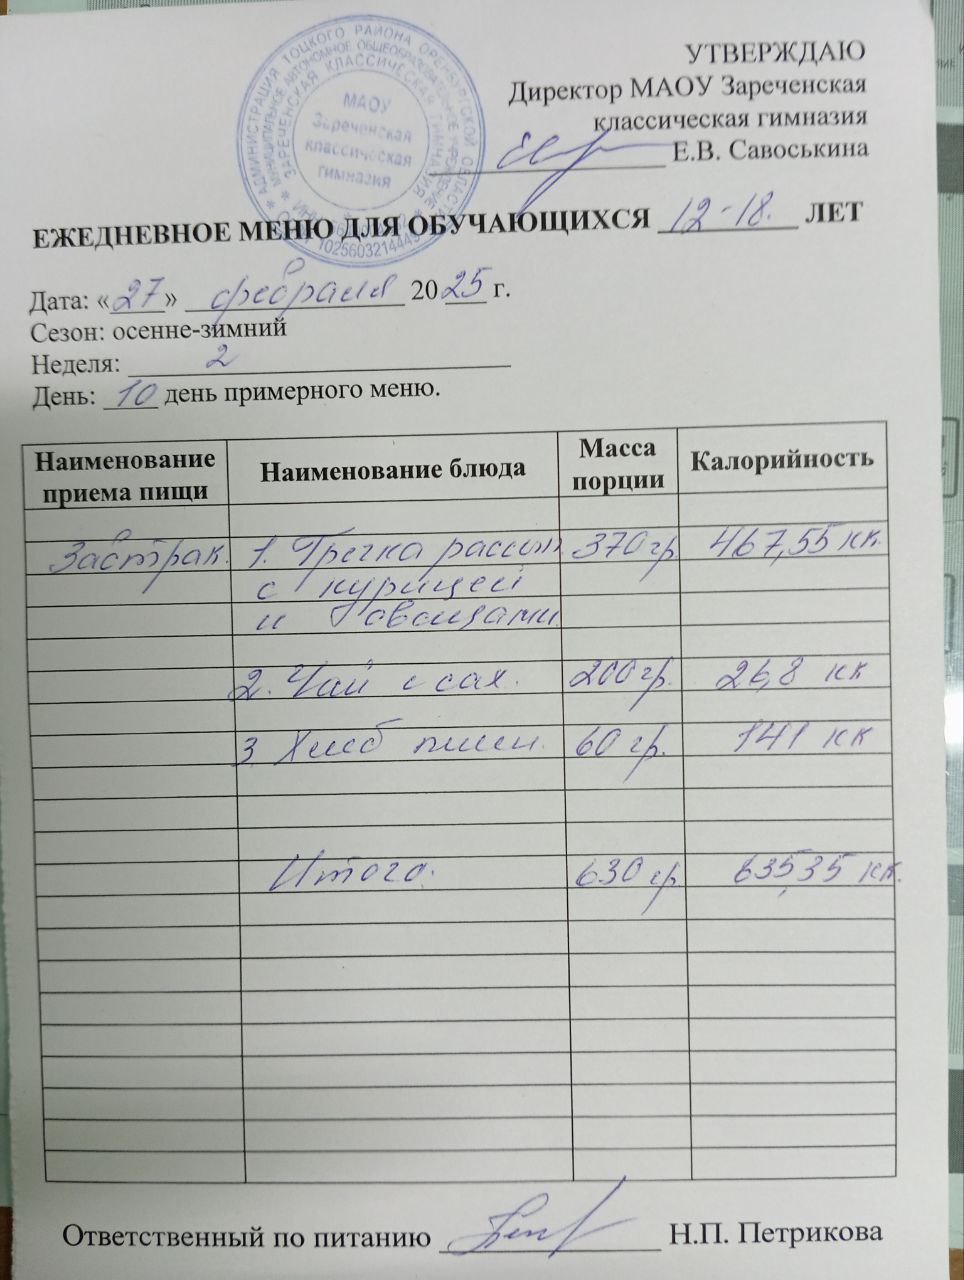 УТВЕРЖДАЮ
Директор МАОУ Зареченская
классическая гимназия
Е.В. Савоськина
АДМИНИСТРАЦИЯ ТОЦКОГО РАЙОНА ОРЕНБУРГСКОЙ ОБЛАСТИ
МУНИЦИПАЛЬНОЕ АВТОНОМНОЕ ОБЩЕОБРАЗОВАТЕЛЬНОЕ УЧРЕЖДЕНИЕ
ЗАРЕЧЕНСКАЯ КЛАССИЧЕСКАЯ ГИМНАЗИЯ
МАОУ
Зареченская
классическая
гимназия
ЕЖЕДНЕВНОЕ МЕНЮ ДЛЯ ОБУЧАЮЩИХСЯ 12-18. ЛЕТ
Дата: «27» февраля 2025 г.
Сезон: осенне-зимний
Неделя: 2
День: 10 день примерного меню.
Наименование приема пищи Наименование блюда Масса порции Калорийность
Завтрак. 1. Гречка рассып 370 гр 467,55 кк.
с курицей
и овощами
2. Чай с сах. 200 гр. 26,8 кк
3 Хлеб пшен. 60 гр. 141 кк
Итого. 630 гр 635,35 кк.
Ответственный по питанию Н.П. Петрикова